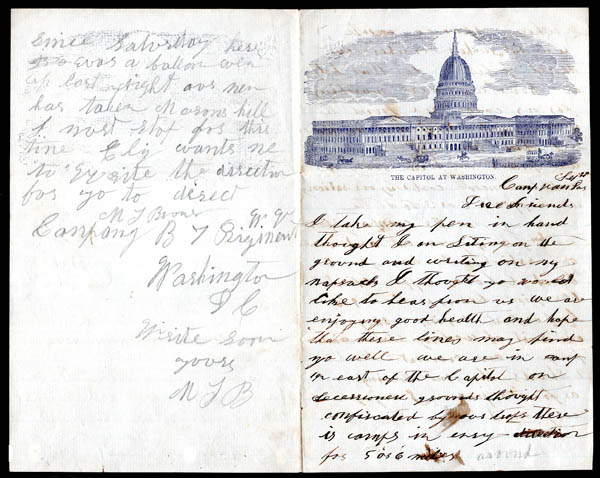 since Saturday here
was a baloon went
up last night our men
has taken Masons hill
I must stop for this
time Ely wants me
to write the direction
for yo to direct
M T
Company B 7 Regiment
Washington
D C
Write soon
yours
M T B
THE CAPITOL AT WASHINGTON.
Sept
Camp
Dear Friends
I take my pen in hand
thought I am Siting on the
ground and writing on my
napsack I thought yo would
like to hear from us we are
enjoying good health and hope
that these lines may find
yo well we are in camp
east of the Capitol on
grounds thought
confiscated by our troops there
is camps in evry direction
for 5 or 6 miles around